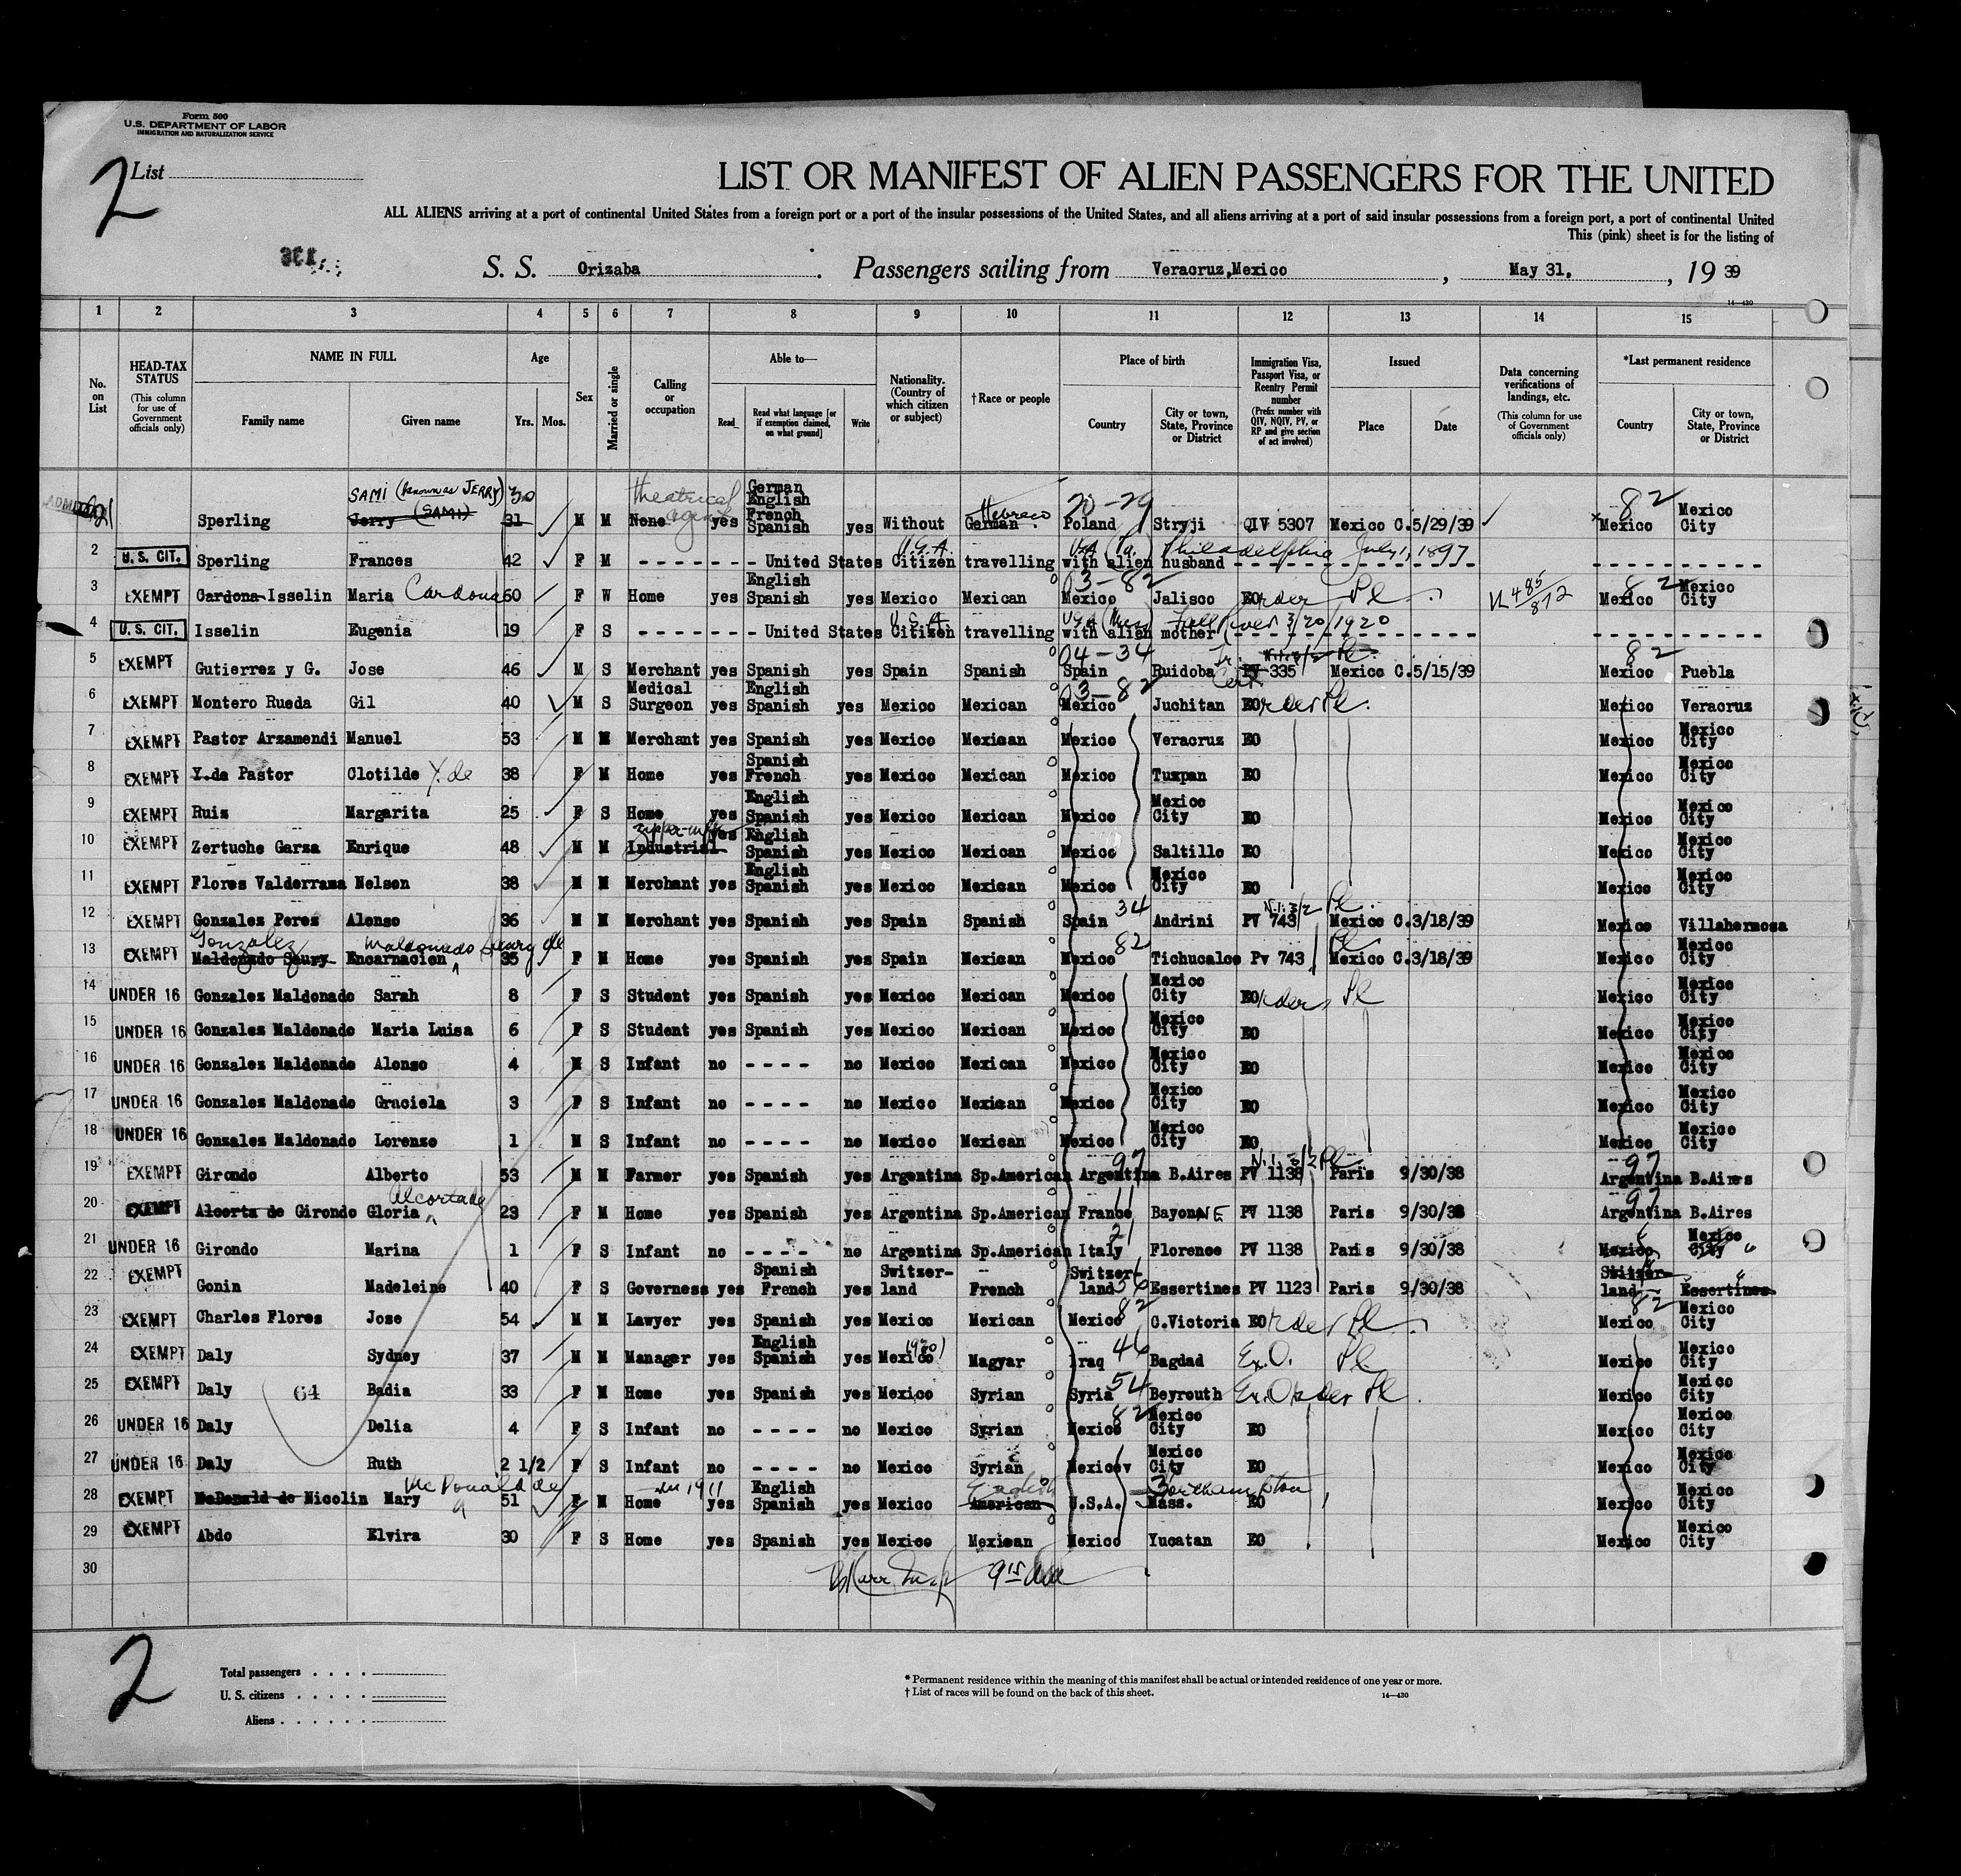 Form 500
U.S. DEPARTMENT OF LABOR
IMMIGRATION AND NATURALIZATION SERVICE
2 List
LIST OR MANIFEST OF ALIEN PASSENGERS FOR THE UNITED
ALL ALIENS arriving at a port of continental United States from a foreign port or a port of the insular possessions of the United States, and all aliens arriving at a port of said insular possessions from a foreign port, a port of continental United
This (pink) sheet is for the listing of
S. S. Orizaba . Passengers sailing from Veracruz,Mexico , May 31, , 19 39
14—430
1 2 3 4 5 6 7 8 9 10 11 12 13 14 15
No. on List
HEAD-TAX STATUS
(This column for use of Government officials only)
NAME IN FULL
Family name Given name
Age
Yrs. Mos.
Sex
Married or single
Calling or occupation
Able to—
Read Read what language [or if exemption claimed, on what ground] Write
Nationality. (Country of which citizen or subject)
†Race or people
Place of birth
Country City or town, State, Province or District
Immigration Visa, Passport Visa, or Reentry Permit number
(Prefix number with QIV, NQIV, PV, or RP and give section of act involved)
Issued
Place Date
Data concerning verifications of landings, etc.
(This column for use of Government officials only)
*Last permanent residence
Country City or town, State, Province or District
SAMI (known as JERRY) 30 theatrical agent German English French Hebrew 20-29 82 Mexico
Sperling Jerry (SAMI) 31 M M None yes Spanish yes Without German Poland Stryji QIV 5307 Mexico C. 5/29/39 Mexico City
2 U. S. CIT. Sperling Frances 42 F M - - - - - - - United States Citizen travelling with alien husband - - - - U.S.A. Philadelphia July 1, 1897
3 EXEMPT Cardona Isselin Maria Cardona 50 F W Home yes English Spanish yes Mexico Mexican 03-82 Mexico Jalisco EO rder Pl 82 Mexico Mexico City
4 U. S. CIT. Isselin Eugenia 19 F S - - - - - - - United States Citizen travelling with alien mother - - - - U.S.A. Fall River 3/20/1920
5 EXEMPT Gutierrez y G. Jose 46 M S Merchant yes Spanish yes Spain Spanish 04-34 Spain Ruidoba PV 335 Mexico C. 5/15/39 82 Mexico Puebla
6 EXEMPT Montero Rueda Gil 40 M S Medical Surgeon yes English Spanish yes Mexico Mexican 03-82 Mexico Juchitan EO rder Pl. Mexico Veracruz
7 EXEMPT Pastor Arzamendi Manuel 53 M M Merchant yes Spanish yes Mexico Mexican Mexico Veracruz EO Mexico Mexico City
8 EXEMPT Y.de Pastor Clotilde Y. de 38 F M Home yes Spanish French yes Mexico Mexican Mexico Tuxpan EO Mexico Mexico City
9 EXEMPT Ruiz Margarita 25 F S Home yes English Spanish yes Mexico Mexican Mexico Mexico City EO Mexico Mexico City
10 EXEMPT Zertuche Garza Enrique 48 M M Industrial yes English Spanish yes Mexico Mexican Mexico Saltillo EO Mexico Mexico City
11 EXEMPT Flores Valderrama Nelson 38 M M Merchant yes English Spanish yes Mexico Mexican Mexico Mexico City EO Mexico Mexico City
12 EXEMPT Gonzales Perez Alonso 36 M M Merchant yes Spanish yes Spain Spanish Spain 34 Andrini PV 743 Mexico C. 3/18/39 Mexico Villahermosa
13 EXEMPT Gonzalez Maldonado Seury Encarnacion Maldonado Seury de 35 F M Home yes Spanish yes Spain Mexican Mexico 82 Tichucalco Pv 743 Mexico C. 3/18/39 Mexico Mexico City
14 UNDER 16 Gonzales Maldonado Sarah 8 F S Student yes Spanish yes Mexico Mexican Mexico Mexico City EO rders Pl Mexico Mexico City
15 UNDER 16 Gonzales Maldonado Maria Luisa 6 F S Student yes Spanish yes Mexico Mexican Mexico Mexico City EO Mexico Mexico City
16 UNDER 16 Gonzales Maldonado Alonso 4 M S Infant no - - - - no Mexico Mexican Mexico Mexico City EO Mexico Mexico City
17 UNDER 16 Gonzales Maldonado Graciela 3 F S Infant no - - - - no Mexico Mexican Mexico Mexico City EO Mexico Mexico City
18 UNDER 16 Gonzales Maldonado Lorenzo 1 M S Infant no - - - - no Mexico Mexican Mexico Mexico City EO Mexico Mexico City
19 EXEMPT Girondo Alberto 53 M M Farmer yes Spanish yes Argentina Sp.American Argentina 97 B.Aires PV 1138 Paris 9/30/38 97 Argentina B.Aires
20 EXEMPT Alcorta de Girondo Gloria Alcorta de 23 F M Home yes Spanish yes Argentina Sp.American France 11 BayonNE PV 1138 Paris 9/30/38 97 Argentina B.Aires
21 UNDER 16 Girondo Marina 1 F S Infant no - - - - no Argentina Sp.American Italy 21 Florence PV 1138 Paris 9/30/38 Mexico Mexico City
22 EXEMPT Gonin Madeleine 40 F S Governess yes Spanish French yes Switzer-land French Switzer-land 36 Essertines PV 1123 Paris 9/30/38 Switzer-land Essertines
23 EXEMPT Charles Flores Jose 54 M M Lawyer yes Spanish yes Mexico Mexican Mexico 82 C.Victoria EO rder Pl. 82 Mexico Mexico City
24 EXEMPT Daly Sydney 37 M M Manager yes English Spanish yes Mexico (1930) Magyar Iraq 46 Bagdad Ex.O. Pl. Mexico Mexico City
25 EXEMPT Daly 64 Badia 33 F M Home yes Spanish yes Mexico Syrian Syria 54 Beyrouth Ex.Order Pl. Mexico Mexico City
26 UNDER 16 Daly Delia 4 F S Infant no - - - - no Mexico Syrian Mexico 82 Mexico City EO Mexico Mexico City
27 UNDER 16 Daly Ruth 2 1/2 F S Infant no - - - - no Mexico Syrian Mexico Mexico City EO Mexico Mexico City
28 EXEMPT McDonald de Nicolin Mary McDonald de 51 F M Home yes English Spanish yes Mexico American U.S.A. Mass. EO Mexico Mexico City
29 EXEMPT Abdo Elvira 30 F S Home yes Spanish yes Mexico Mexican Mexico Yucatan EO Mexico Mexico City
30
2
Total passengers . . . .
U. S. citizens . . . . .
Aliens . . . . . .
* Permanent residence within the meaning of this manifest shall be actual or intended residence of one year or more.
† List of races will be found on the back of this sheet.
14—430